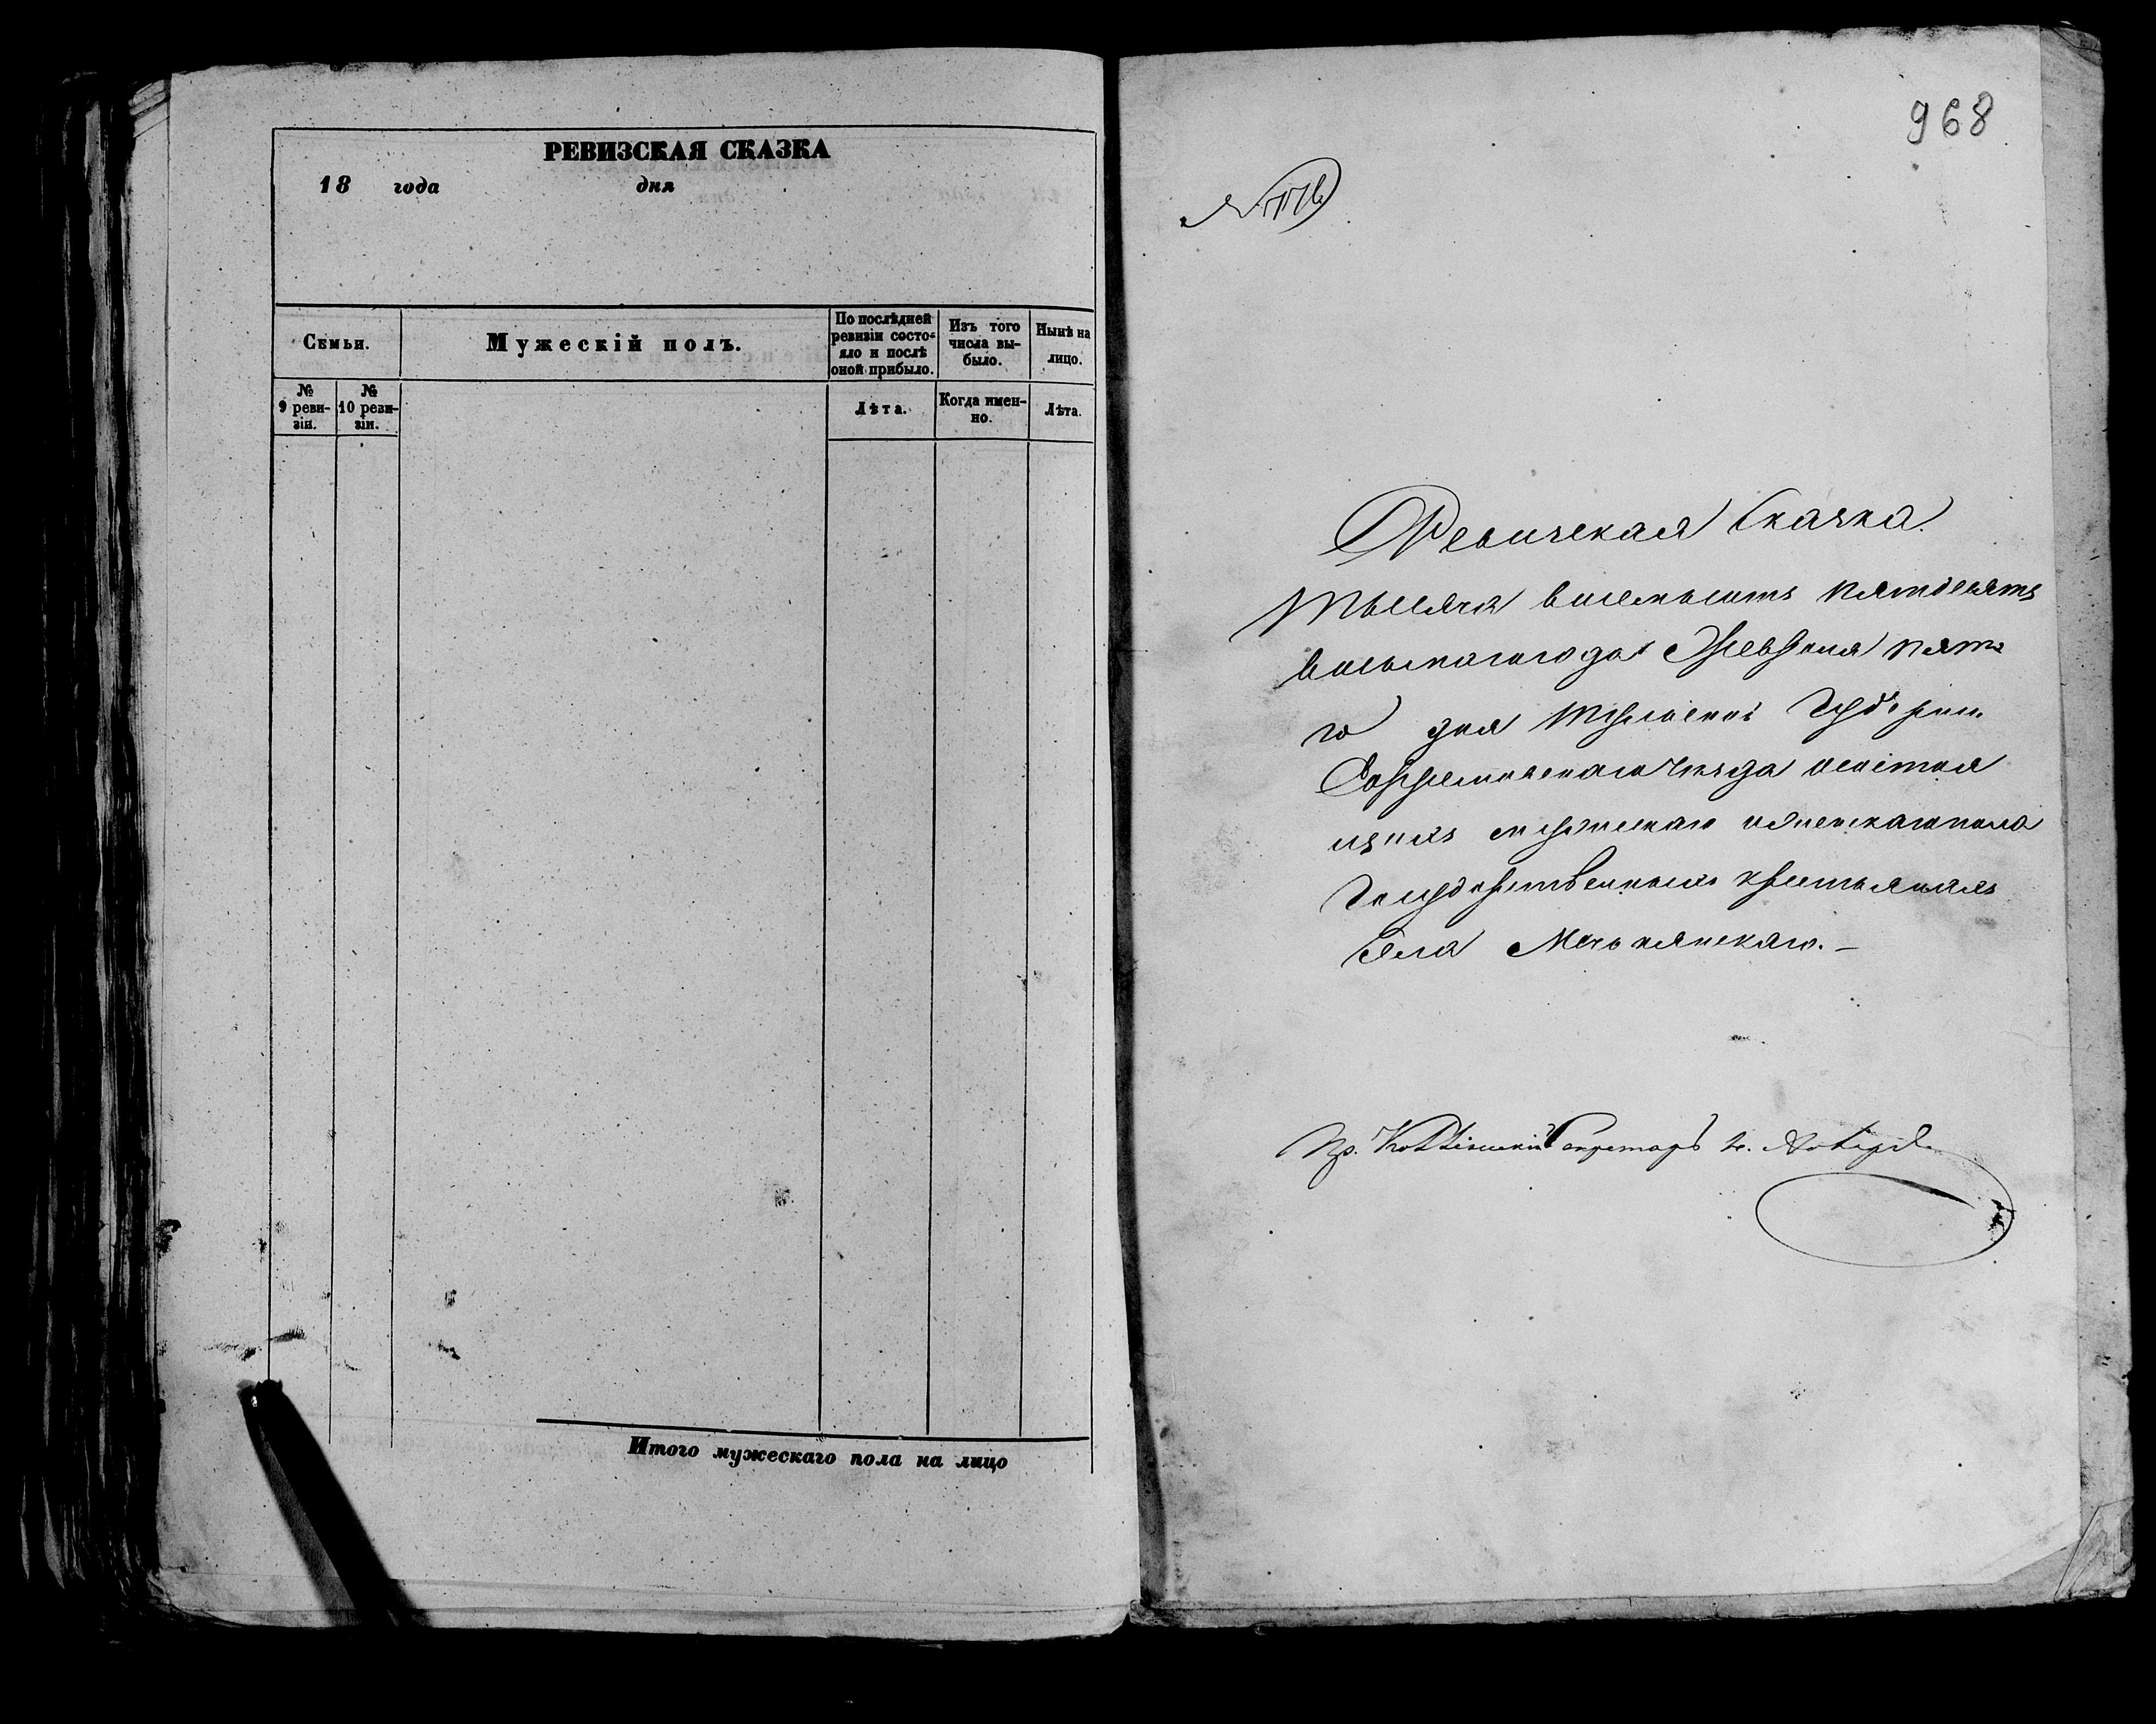 РЕВИЗСКАЯ СКАЗКА
18 года дня
Семьи.
Мужескій полъ.
По послѣдней
ревизіи состо-
яло и послѣ
оной прибыло.
Изъ того
числа вы-
было.
Нынѣ на
лицо.
№
9 реви-
зіи.
№
10 реви-
зіи.
Лѣта.
Когда имен-
но.
Лѣта.
Итого мужескаго пола на лицо
968
Ревизская Сказка
Тысяча восемьсотъ пятдесятъ
восьмаго года Февраля
го дня Губерніи
уѣзда о состоя
щихъ мужескаго и женскаго пола
Государственныхъ крестьянахъ
Села
Секретарь